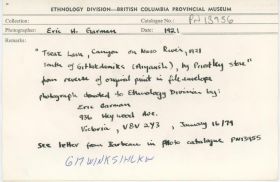 ETHNOLOGY DIVISION—BRITISH COLUMBIA PROVINCIAL MUSEUM
Collection Catalogue No.: PN 13956
Photographer: Eric H. Garman Date: 1921
Remarks:
"Tseax Lava, Canyon on Nass River, 1921
south of Gitlakdamiks (Aiyansh), by Priestley store"
from reverse of original print in file envelope
photograph donated to Ethnology Division by:
Eric Garman
936 Heywood Ave.
Victoria, V8V 2Y3, January 16/79
See letter from Garman in Photo catalogue PN13955
GITWINKSIHLKW